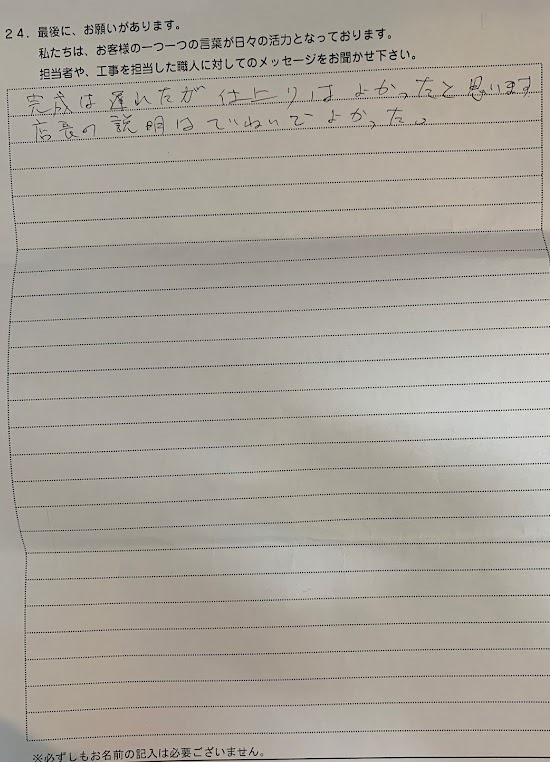 24. 最後に、お願いがあります。
私たちは、お客様の一つ一つの言葉が日々の活力となっております。
担当者や、工事を担当した職人に対してのメッセージをお聞かせ下さい。
完成は遅れたが 仕上りは よかったと思います
店長の説明はていねいで よかった。
※必ずしもお名前の記入は必要ございません。